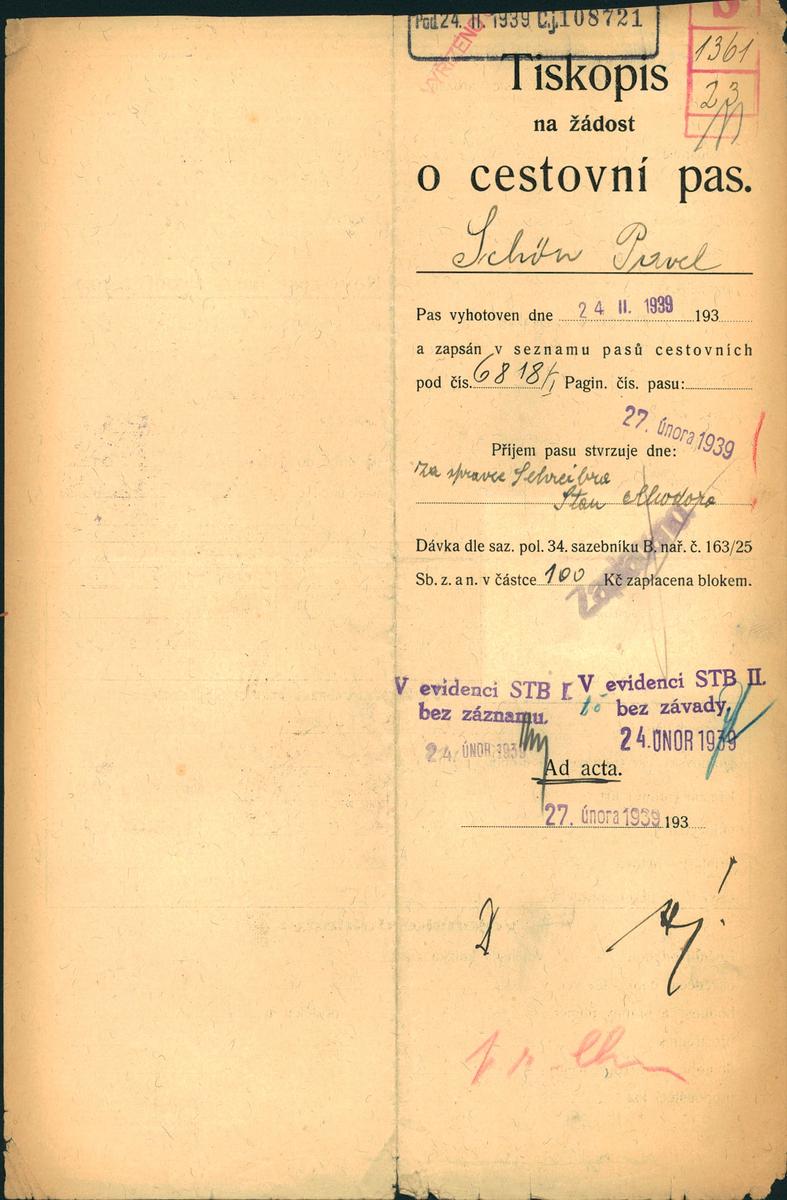 Pod 24. II. 1939 Čj. 108721
VYŘÍZENO
1361
23
Tiskopis
na žádost
o cestovní pas.
Schön Pavel
Pas vyhotoven dne 24 II. 1939 193
a zapsán v seznamu pasů cestovních
pod čís. 6818/I Pagin. čís. pasu:
27. února 1939
Příjem pasu stvrzuje dne:
za správce Schreibra
Stan
Dávka dle saz. pol. 34. sazebníku B. nař. č. 163/25
Sb. z. a n. v částce 100 Kč zaplacena blokem.
Zaplaceno
V evidenci STB I.
bez záznamu.
24. ÚNOR 1939
V evidenci STB II.
bez závady.
24. ÚNOR 1939
Ad acta.
27. února 1939 193